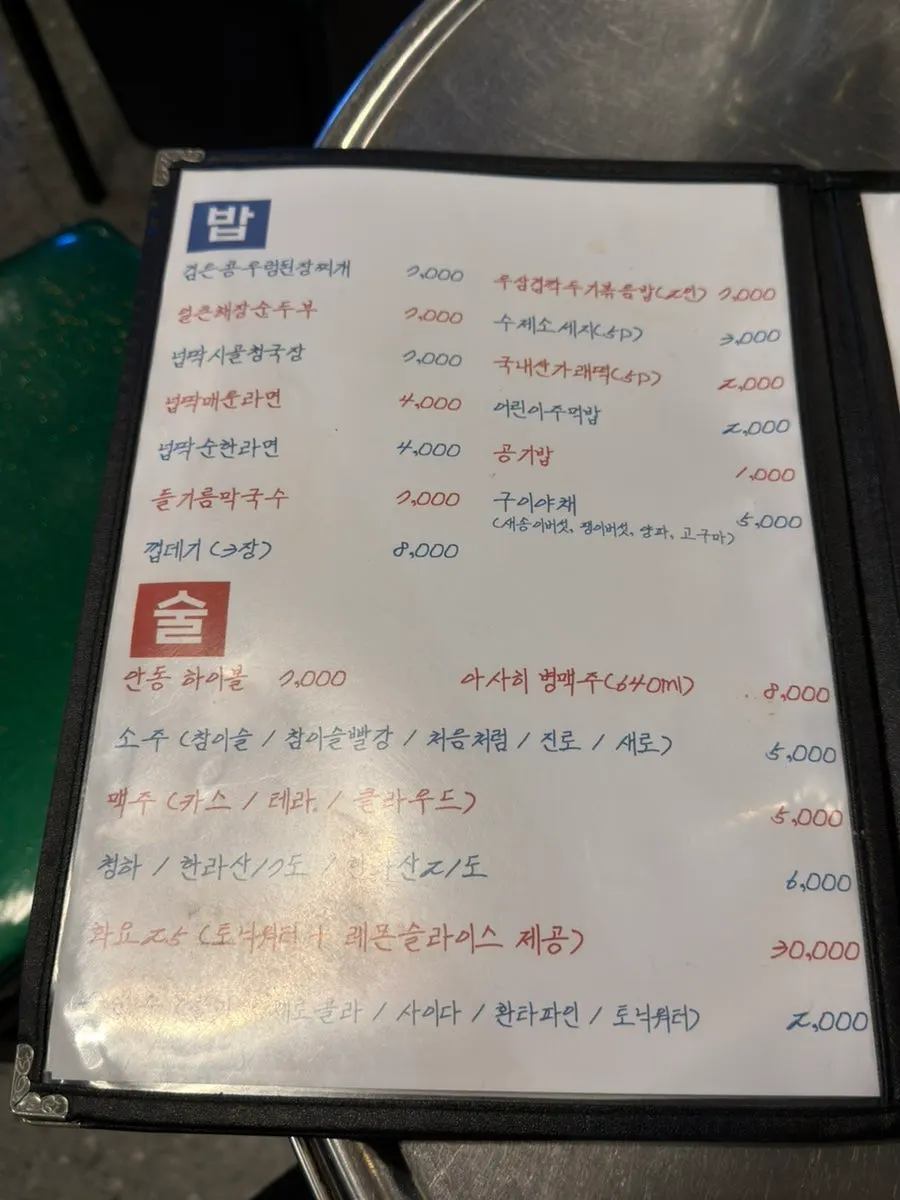 밥
검은콩우렁된장찌개 7,000
얼큰해장순두부 7,000
넙딱시골청국장 7,000
넙딱매운라면 4,000
넙딱순한라면 4,000
들기름막국수 7,000
껍데기(3장) 8,000
우삼겹깍두기볶음밥(2인) 7,000
수제소세지(5P) 3,000
국내산가래떡(5P) 2,000
어린이주먹밥 2,000
공기밥 1,000
구이야채 5,000
(새송이버섯, 팽이버섯, 양파, 고구마)
술
안동 하이볼 7,000 아사히 병맥주(640ml) 8,000
소주 (참이슬 / 참이슬빨강 / 처음처럼 / 진로 / 새로) 5,000
맥주 (카스 / 테라 / 클라우드) 5,000
청하 / 한라산17도 / 한라산21도 6,000
화요25 (토닉워터 + 레몬슬라이스 제공) 30,000
제로콜라 / 사이다 / 환타파인 / 토닉워터) 2,000